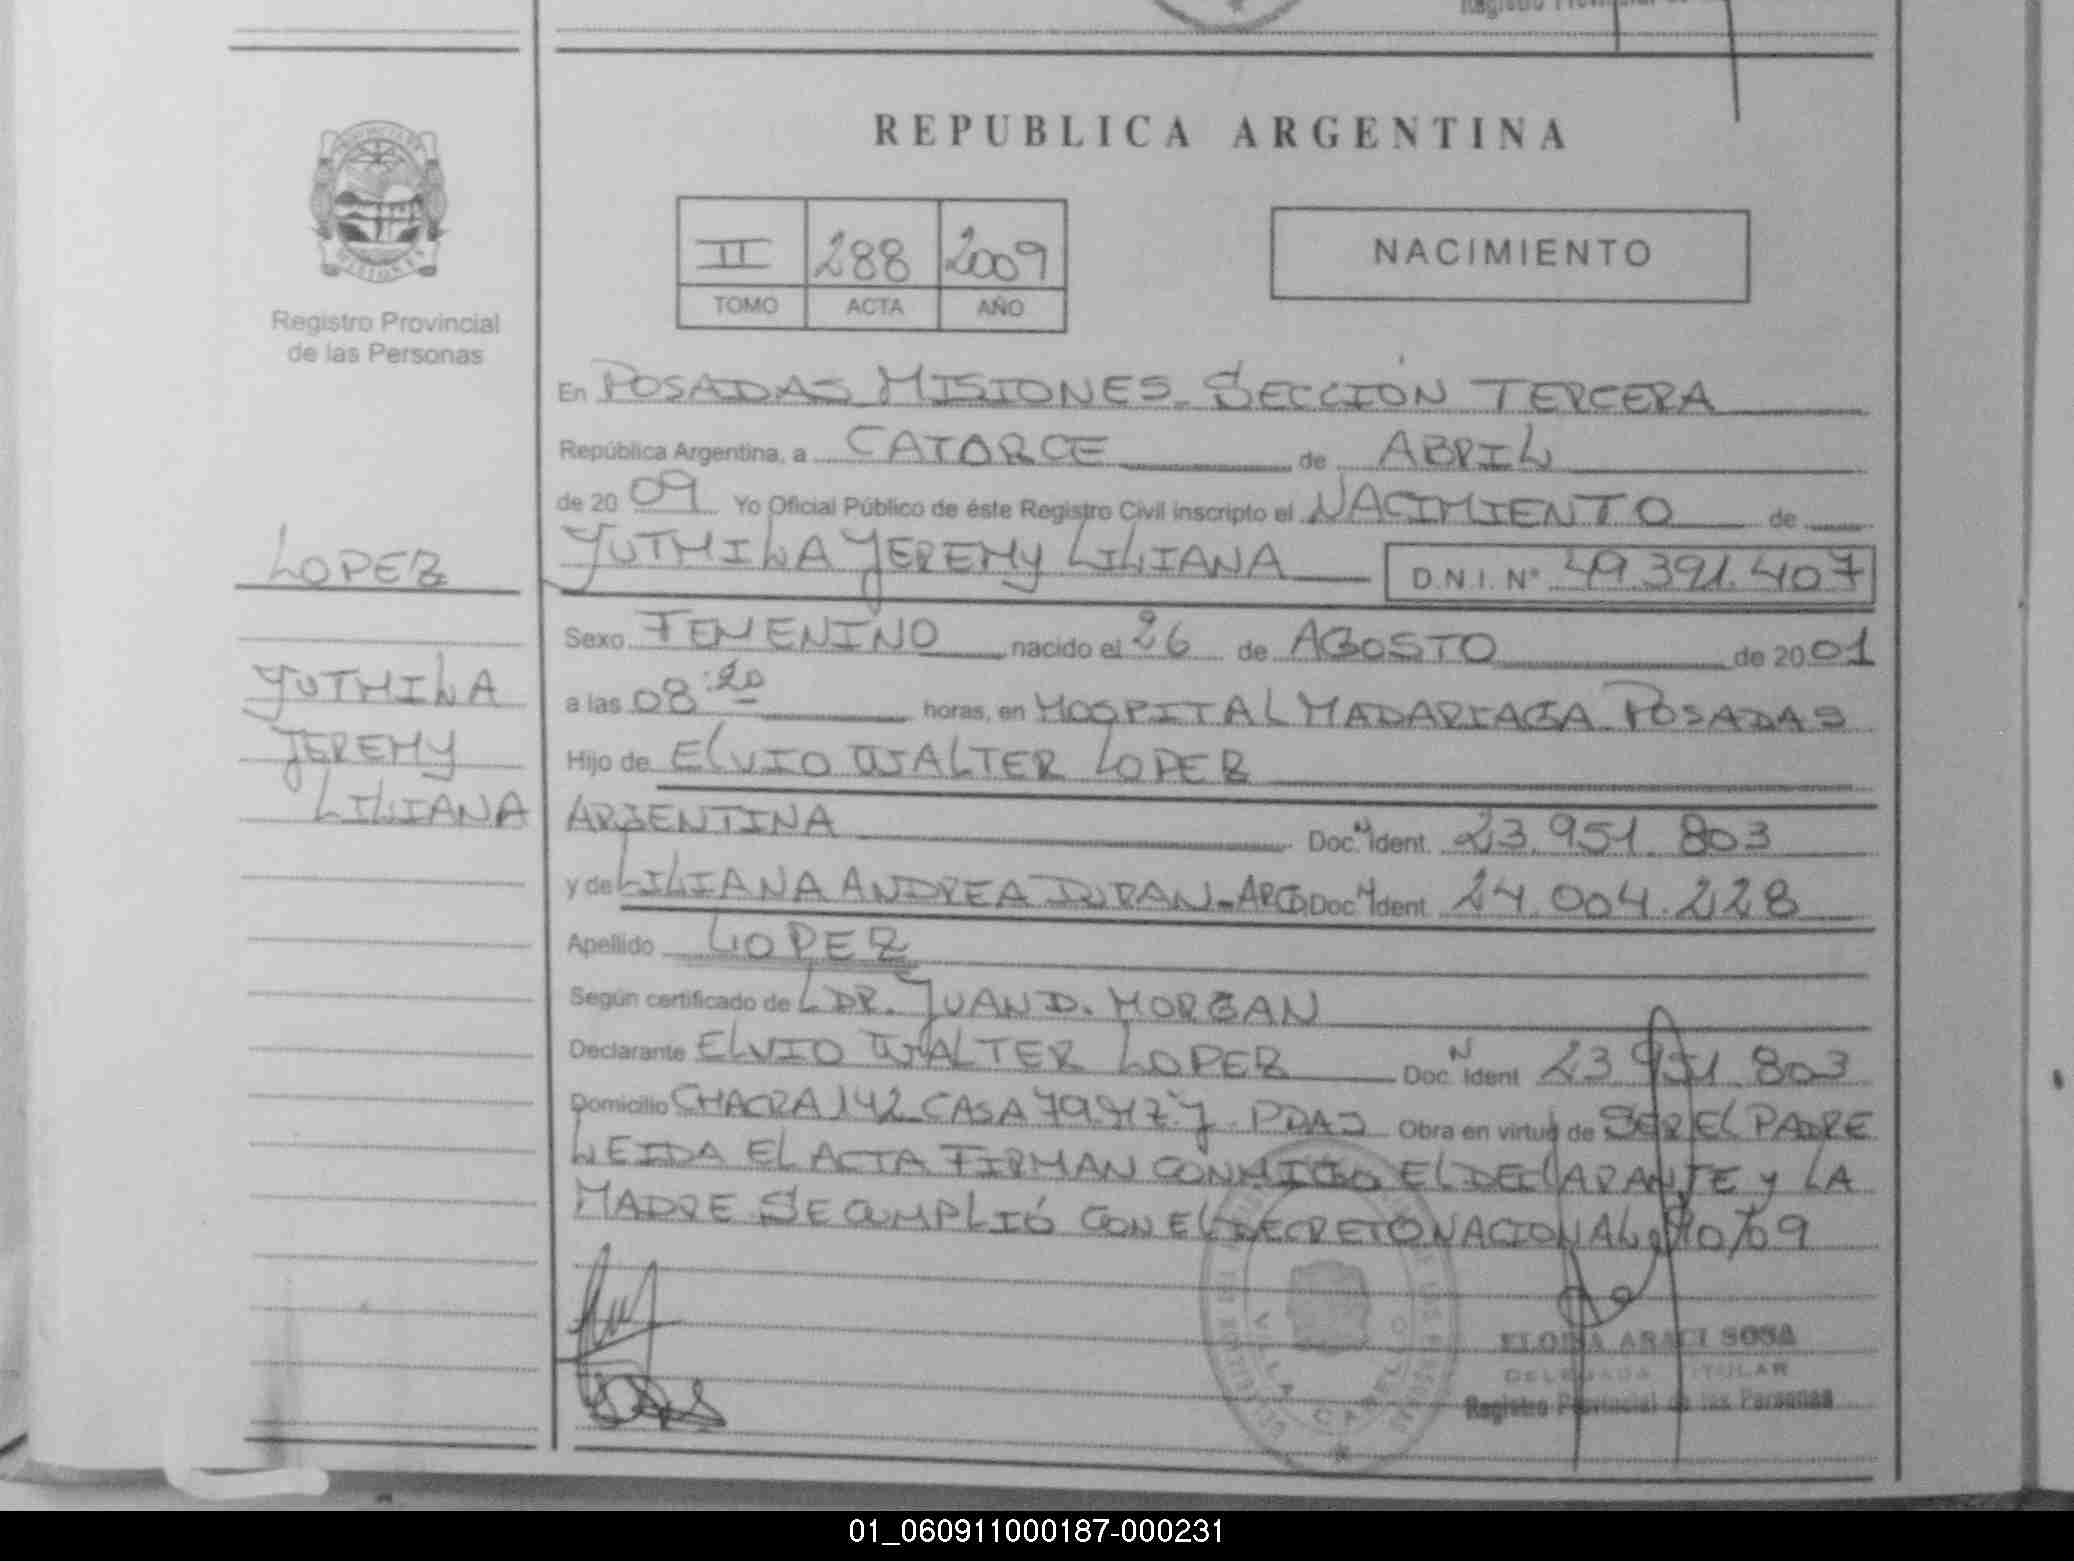 REPUBLICA ARGENTINA
II 288 2009
TOMO ACTA AÑO
NACIMIENTO
Registro Provincial
de las Personas
LOPEZ
YUTHILA
JEREMY
LILIANA
En POSADAS MISIONES - SECCIÓN TERCERA
República Argentina, a CATORCE de ABRIL
de 20 09 Yo Oficial Público de éste Registro Civil inscripto el NACIMIENTO de
YUTHILA JEREMY LILIANA D.N.I. Nº 49.391.407
Sexo FEMENINO nacido el 26 de AGOSTO de 20 01
a las 08:20 horas, en HOSPITAL MADARIAGA POSADAS
Hijo de ELVIO WALTER LOPEZ
ARGENTINA Doc. N Ident. 23.951.803
y de LILIANA ANDREA DURAN - ARG. Doc. N Ident. 24.004.228
Apellido LOPEZ
Según certificado de L DR. JUAN D. MORGAN
Declarante ELVIO WALTER LOPEZ Doc. N Ident 23.951.803
Domicilio CHACRA 142 CASA PDAS Obra en virtud de SER EL PADRE
LEIDA EL ACTA FIRMAN CONMIGO EL DECLARANTE Y LA
MADRE. SE CUMPLIÓ CON EL DECRETO NACIONAL 90/09
VILLA CABELLO
ELOISA ARACI SOSA
DELEGADA TITULAR
Registro Provincial de las Personas
01_060911000187-000231